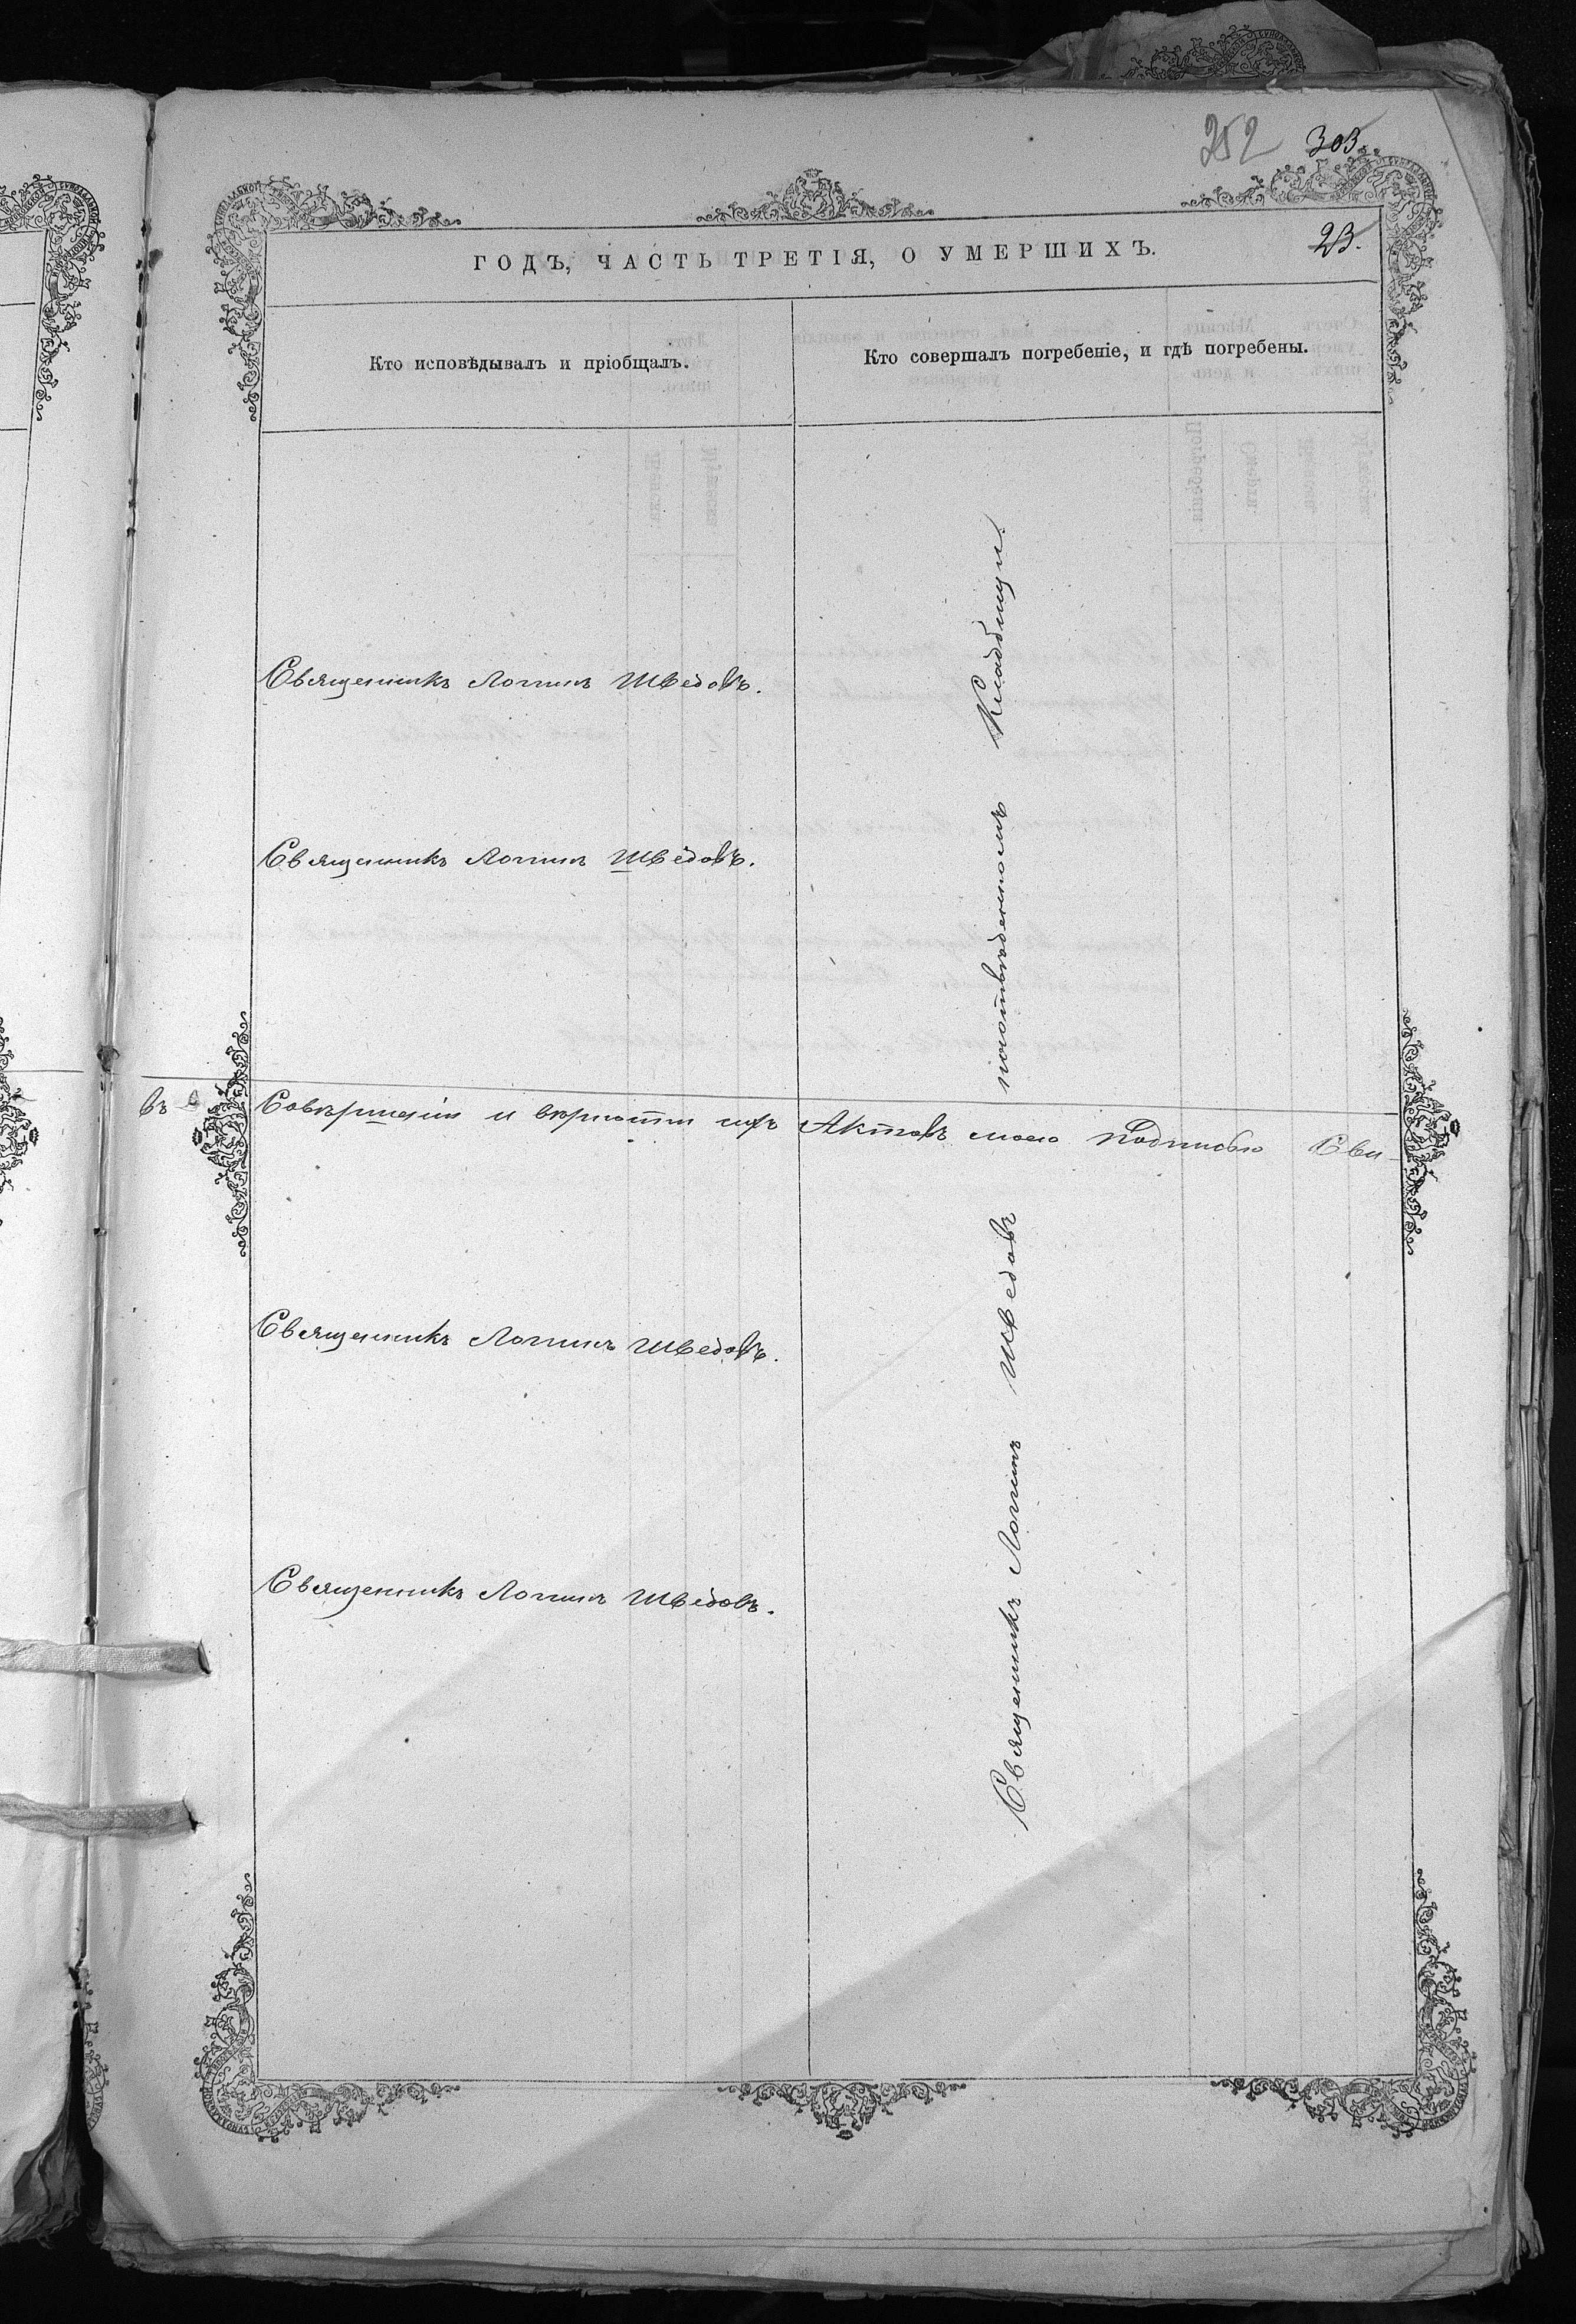 252 303.
23.
ГОДЪ, ЧАСТЬ ТРЕТІЯ, О УМЕРШИХЪ.
Кто исповѣдывалъ и пріобщалъ.
Кто совершалъ погребеніе, и гдѣ погребены.
Священникъ Логинъ Шведовъ.
Священникъ Логинъ Шведовъ.
въ Совершеніи и вѣрности сихъ Актовъ моею Подписью Сви-
Священникъ Логинъ Шведовъ.
Священникъ Логинъ Шведовъ.
Священникъ Логинъ Шведовъ
Кладбищи.